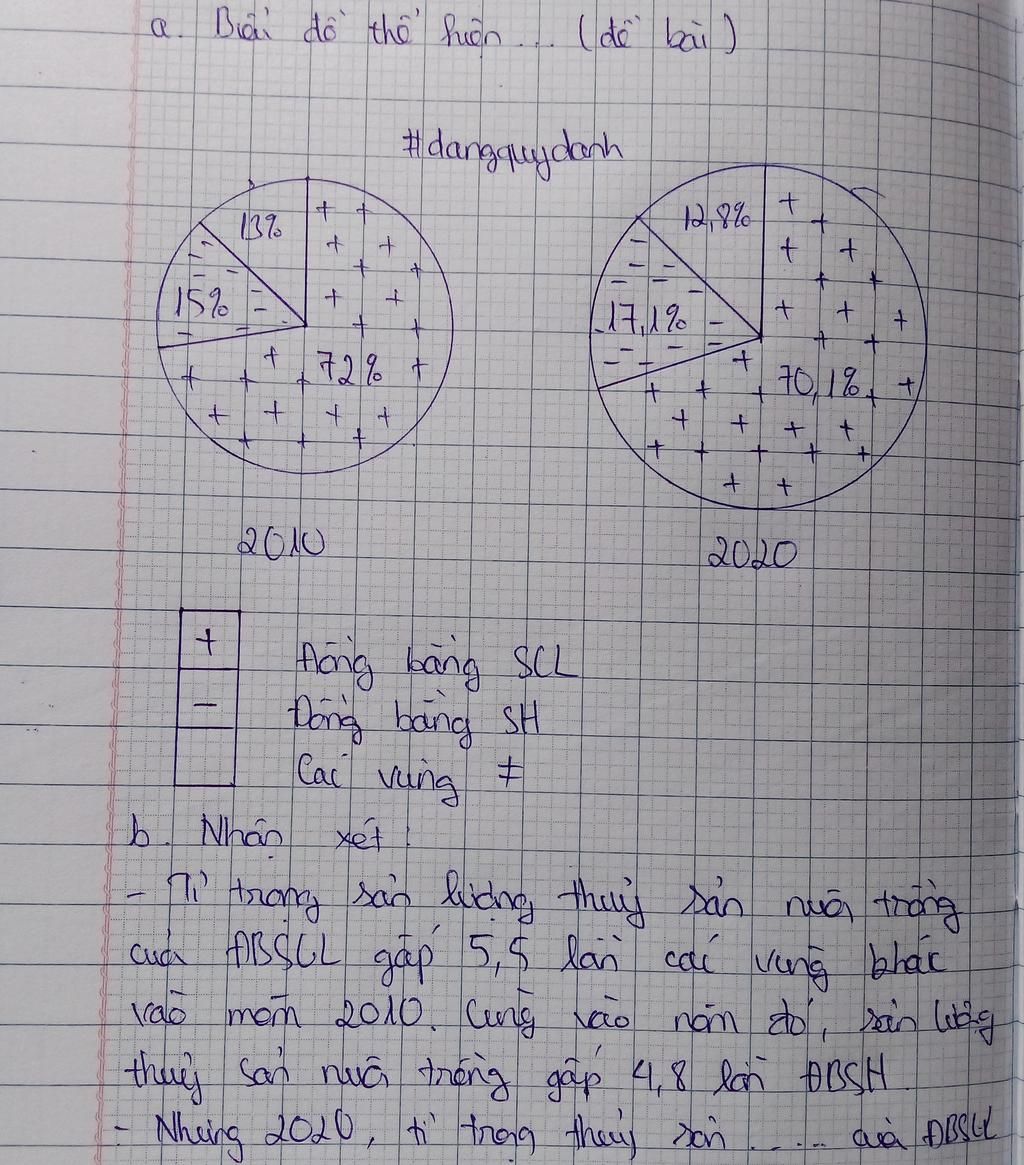 a. Biểu đồ thể hiện ... (đề bài)
#dangquydanh
13%
15%
72%
12,8%
17,1%
70,1%
2010
2020
+ Đồng bằng SCL
- Đồng bằng SH
Các vùng ≠
b. Nhận xét:
- Tỉ trọng sản lượng thuỷ sản nuôi trồng
của ĐBSCL gấp 5,5 lần các vùng khác
vào măm 2010. Cũng vào năm đó, sản lượng
thuỷ sản nuôi trồng gấp 4,8 lần ĐBSH.
- Nhưng 2020, tỉ trọng thuỷ sản ..... của ĐBSCL